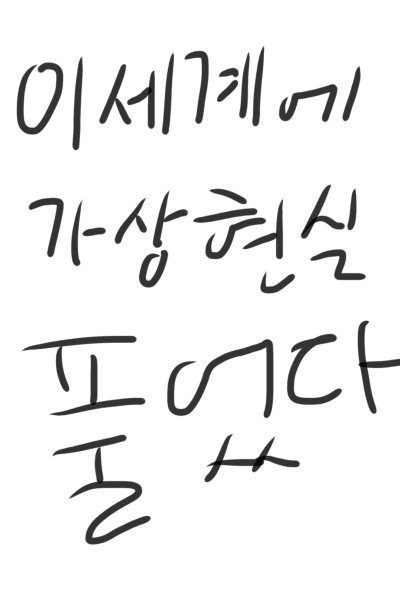 이세계에
가상현실
풀었다